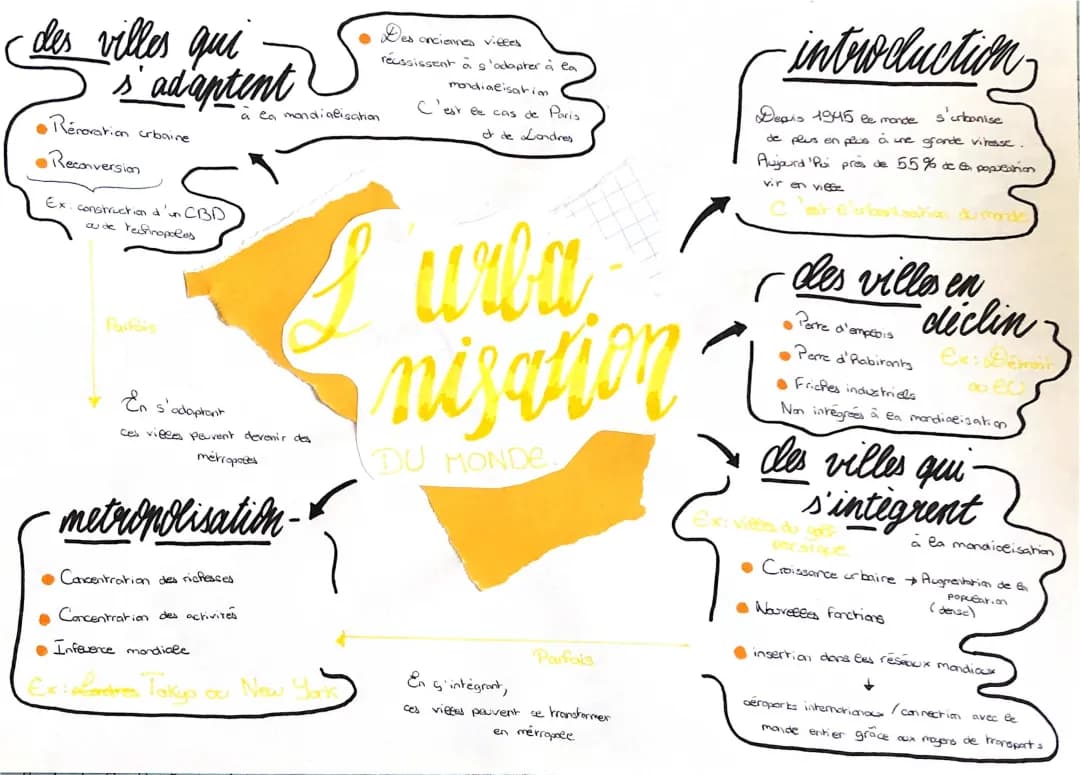 L'urba-
nisation
DU MONDE.
introduction
Depuis 1945 le monde s'urbanise
de plus en plus à une grande vitesse.
Aujourd'hui près de 55% de la population
vit en ville
C'est l'urbanisation du monde
des villes en
déclin
Perte d'emplois
Perte d'habitants
Ex: Détroit
au EU
Friches industriels
Non intégrées à la mondialisation
des villes qui
s'intègrent
à la mondialisation
Ex: villes du golf
persique
Croissance urbaine → Augmentation de la
population
(dense)
Nouvelles fonctions
insertion dans les réseaux mondiaux
↓
aéroports internationaux / connection avec le
monde entier grâce aux moyens de transports
Parfois
En s'intégrant,
ces villes peuvent se transformer
en métropole
metropolisation
Concentration des richesses
Concentration des activités
Influence mondiale
Ex: Londres Tokyo ou New York
des villes qui
s'adaptent
à la mondialisation
Rénovation urbaine
Reconversion
Ex: construction d'un CBD
ou de technopoles
Des anciennes villes
réussissent à s'adapter à la
mondialisation
C'est le cas de Paris
et de Londres
Parfois
En s'adaptant
ces villes peuvent devenir des
métropoles